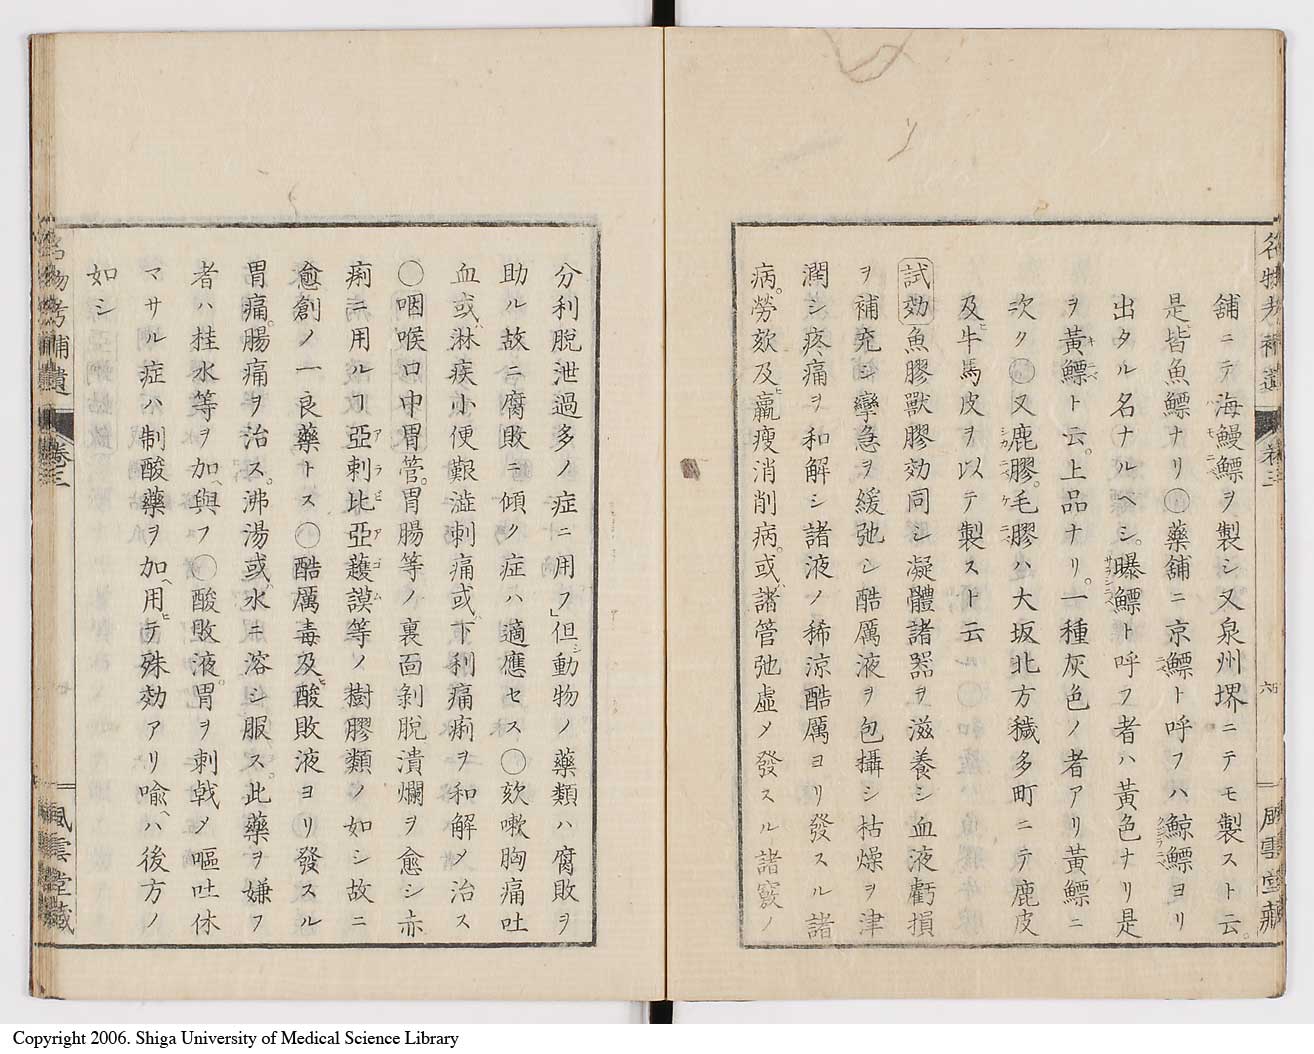 名物考補遺 卷三 六四 風雲堂藏
舖ニテ海鰻鰾ヲ製シ又泉州堺ニテモ製スト云。
是皆魚鰾ナリ○藥舖ニ京鰾ト呼フハ鯨鰾ヨリ
出タル名ナルヘシ。曝鰾ト呼フ者ハ黃色ナリ是
ヲ黃鰾ト云。上品ナリ。一種灰色ノ者アリ黃鰾ニ
次ク○又鹿膠。毛膠ハ大坂北方穢多町ニテ鹿皮
及牛馬皮ヲ以テ製スト云
試効 魚膠獸膠効同シ凝體諸器ヲ滋養シ血液虧損
ヲ補充シ攣急ヲ緩弛シ酷厲液ヲ包攝シ枯燥ヲ津
潤シ疼痛ヲ和解シ諸液ノ稀涼酷厲ヨリ發スル諸
病。勞欬及羸瘦消削病。或諸管弛虛〆發スル諸竅ノ
分利脫泄過多ノ症ニ用フ」但動物ノ藥類ハ腐敗ヲ
助ル故ニ腐敗ニ傾ク症ハ適應セス○欬嗽胸痛吐
血或淋疾小便艱澁刺痛或下利痛痢ヲ和解〆治ス
○咽喉口中胃管。胃腸等ノ裏面剝脫潰爛ヲ愈シ赤
痢ニ用ルヿ亞剌比亞護謨等ノ樹膠類ノ如シ故ニ
愈創ノ一良藥トス○酷厲毒及酸敗液ヨリ發スル
胃痛。腸痛ヲ治ス。沸湯或水ニ溶シ服ス。此藥ヲ嫌フ
者ハ桂水等ヲ加與フ○酸敗液胃ヲ刺戟〆嘔吐休
マサル症ハ制酸藥ヲ加用テ殊効アリ喩ハ後方ノ
如シ
物考補遺 卷三 風雲堂藏
Copyright 2006. Shiga University of Medical Science Library